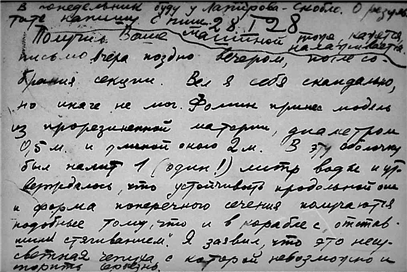 в понедельник буду у Лапирова-Скобло. О резуль-
тате напишу с ним. 28 I 28
Получив Ваше
тоже, кажется,
налаживается.
письмо вчера поздно вечером, после со-
брания секции. Вел я себя скандально,
но иначе не мог. Фомин принес модель
из прорезиненной материи, диаметром
0,5 м. и длиной около 2 м. В эту оболочку
был налит 1 (один!) литр воды и ут-
верждалось, что устойчивость продольной оси
и форма поперечного сечения получаются
подобные тому, что и в корабле с
стягиванием". Я заявил, что это
с которой невозможно и